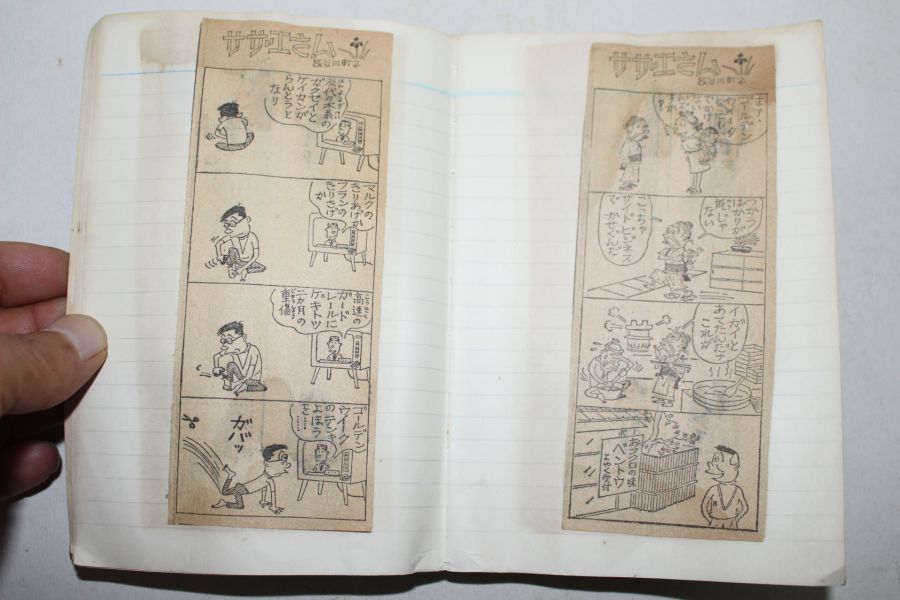 サザエさん
長谷川町子
お茶の水系の
ガクセイと
ケイカンが
らんとうと
なり
マルクの
きりあげか
フランの
きりさげ
か
高速の
ガード
レールに
ゲキトツ
二カ月の
重傷
ゴールデン
ウイーク
のテンキ
よほう
を……
ガバッ
サザエさん
長谷川町子
ゴールデン
ウイーク
つかう
ばかりが
能じゃ
ない
こっちゃ
サイドビジネス
で かせぐんだ
イガイと
あったんだナ
これが
おフクロの味
ベントウ
よやく受付